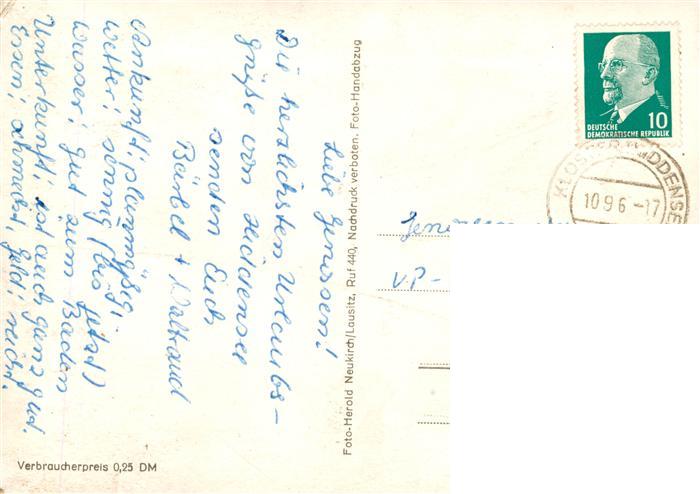 Liebe Genossen!
Die herzlichsten Urlaubs-
grüße von Hiddensee
senden Euch
Bärbel + Waltraud
Ankunft: planmäßig,
Wetter: sonnig (bis jetzt)
Wasser: gut zum Baden
Unterkunft: ist auch ganz gut.
Essen: schmeckt, Geld: reicht.
Foto-Herold Neukirch/Lausitz, Ruf 440, Nachdruck verboten. Foto-Handabzug
Verbraucherpreis 0,25 DM
10
DEUTSCHE
DEMOKRATISCHE REPUBLIK
KLOSTER HIDDENSEE
10.9.6 -17
VP-